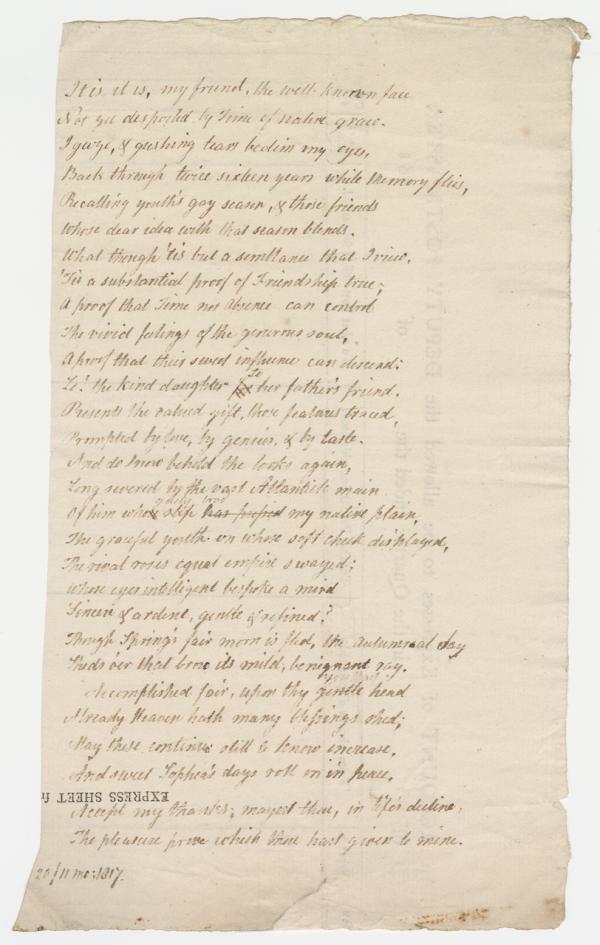 It is it is, my friend, the well-known face
Not yet despoiled by Time of native grace.
I gaze, & gushing tears bedim my eyes,
Back through twice sixteen years while Memory flies,
Recalling youth's gay season, & those friends
Whose dear idea with that season blends.
What though 'tis but a semblance that I view,
'Tis a substantial proof of Friendship true;
A proof that Time nor Absence can control
The vivid feelings of the generous soul,
A proof that their sweet influence can descend;
Lo! the kind daughter to her father's friend,
Presents the valued gift, those features traced,
Prompted by love, by genius, & by taste.
And do I now behold the looks again,
Long severed by the vast Atlantick main
Of him whose steps has my native plain,
The graceful youth on whose soft cheek displayed,
The rival roses equal empire swayed;
Whose eyes intelligent bespoke a mind
Sincere & ardent, gentle & refined?
Though Spring's fair morn is fled, the autumnal day
Sheds o'er that brow its mild, benignant ray.
Accomplished fair, upon thy gentle head
Already Heaven hath many blessings shed;
May these continue still to know increase,
And sweet Sophia's days roll on in peace.
EXPRESS SHEET
Accept my thanks; mayest thou, in life's decline,
The pleasure prove which thou hast given to mine.
20/11 mo: 1817.